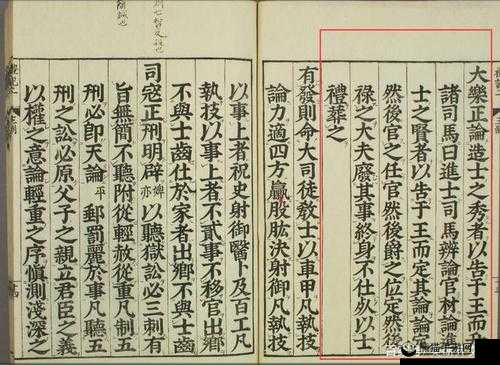 大樂正論造士之秀者以告于王而升
諸司馬曰進士司馬辨論官材論進
士之賢者以告于王而定其論論定
然後官之任官然後爵之位定然後
祿之大夫廢其事終身不仕死以士
禮葬之
有發則命大司徒教士以車甲凡執技
論力適四方臝股肱決射御凡執技
以事上者祝史射御醫卜及百工凡
執技以事上者不貳事不移官出鄉
不與士齒仕於家者出鄉不與士齒
司寇正刑明辟婢亦以聽獄訟必三刺有
旨無簡不聽附從輕赦從重凡制五
刑必即天論平郵罰麗於事凡聽五
刑之訟必原父子之親立君臣之義
以權之意論輕重之序慎測淺深之